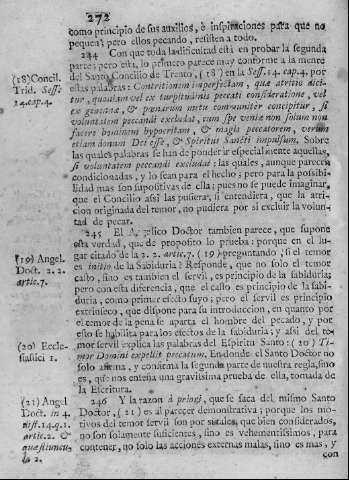 272
como principio de sus auxilios, è inspiraciones para que no
pequen; pero ellos pecando, resisten a todo.
244 Con que toda la dificultad està en probar la segunda
parte; pero esta, lo primero parece muy conforme à la mente
del Santo Concilio de Trento, (18) en la Sess. 14. cap. 4. por
estas palabras: Contritionem imperfectam, quæ atritio dici-
tur, quoniam vel ex turpitudinis peccati consideratione, vel
ex gehennæ, & pœnarum metu communiter concipitur, si
voluntatem peccandi excludat, cum spe veniæ non solum non
facere hominem hypocritam, & magis peccatorem, verum
etiam donum Dei esse, & Spiritus Sancti impulsum. Sobre
las quales palabras se han de ponderar especialmente aquellas,
si voluntatem peccandi excludat; las quales, aunque parecen
condicionadas, y lo sean para el hecho; pero para la possibi-
lidad mas son supositivas de ella; pues no se puede imaginar,
que el Concilio assi las pusiera, si entendiera, que la atri-
cion originada del temor, no pudiera por si excluir la volun-
tad de pecar.
245 El Angelico Doctor tambien parece, que supone
esta verdad, que de proposito lo prueba: porque en el lu-
gar citado de la 2. 2. artic. 7. (19) preguntando, si el temor
es initio de la Sabiduria? Responde, que no solo el temor
casto, sino es tambien el servil, es principio de la sabiduria;
pero con esta diferencia, que el casto es principio de la sabi-
duria, como primer efecto suyo; pero el servil es principio
extrinseco, que dispone para su introduccion, en quanto por
el temor de la pena se aparta el hombre del pecado, y por
esto se habilita para los efectos de la sabiduria; y assi del te-
mor servil explica las palabras del Espiritu Santo: (20) Ti-
mor Domini expellit peccatum. En donde el Santo Doctor no
solo afirma, y confirma la segunda parte de nuestra regla, sino
es, que nos enseña una gravissima prueba de ella, tomada de
la Escritura.
246 Y la razon à priori, que se saca del mismo Santo
Doctor, (21) es al parecer demonstrativa; porque los moti-
vos del temor servil son por si tales, que bien considerados,
no son solamente suficientes, sino es vehementissimos, para
contener, no solo las acciones externas malas, sino es mas, y
con
(18) Concil.
Trid. Sess.
14. cap. 4.
(19) Angel.
Doct. 2. 2.
artic. 7.
(20) Eccle-
siastici 1.
(21) Angel
Doct. in 4.
dist. 14. q. 1.
artic. 2. &
quæstiuncu-
la 2.